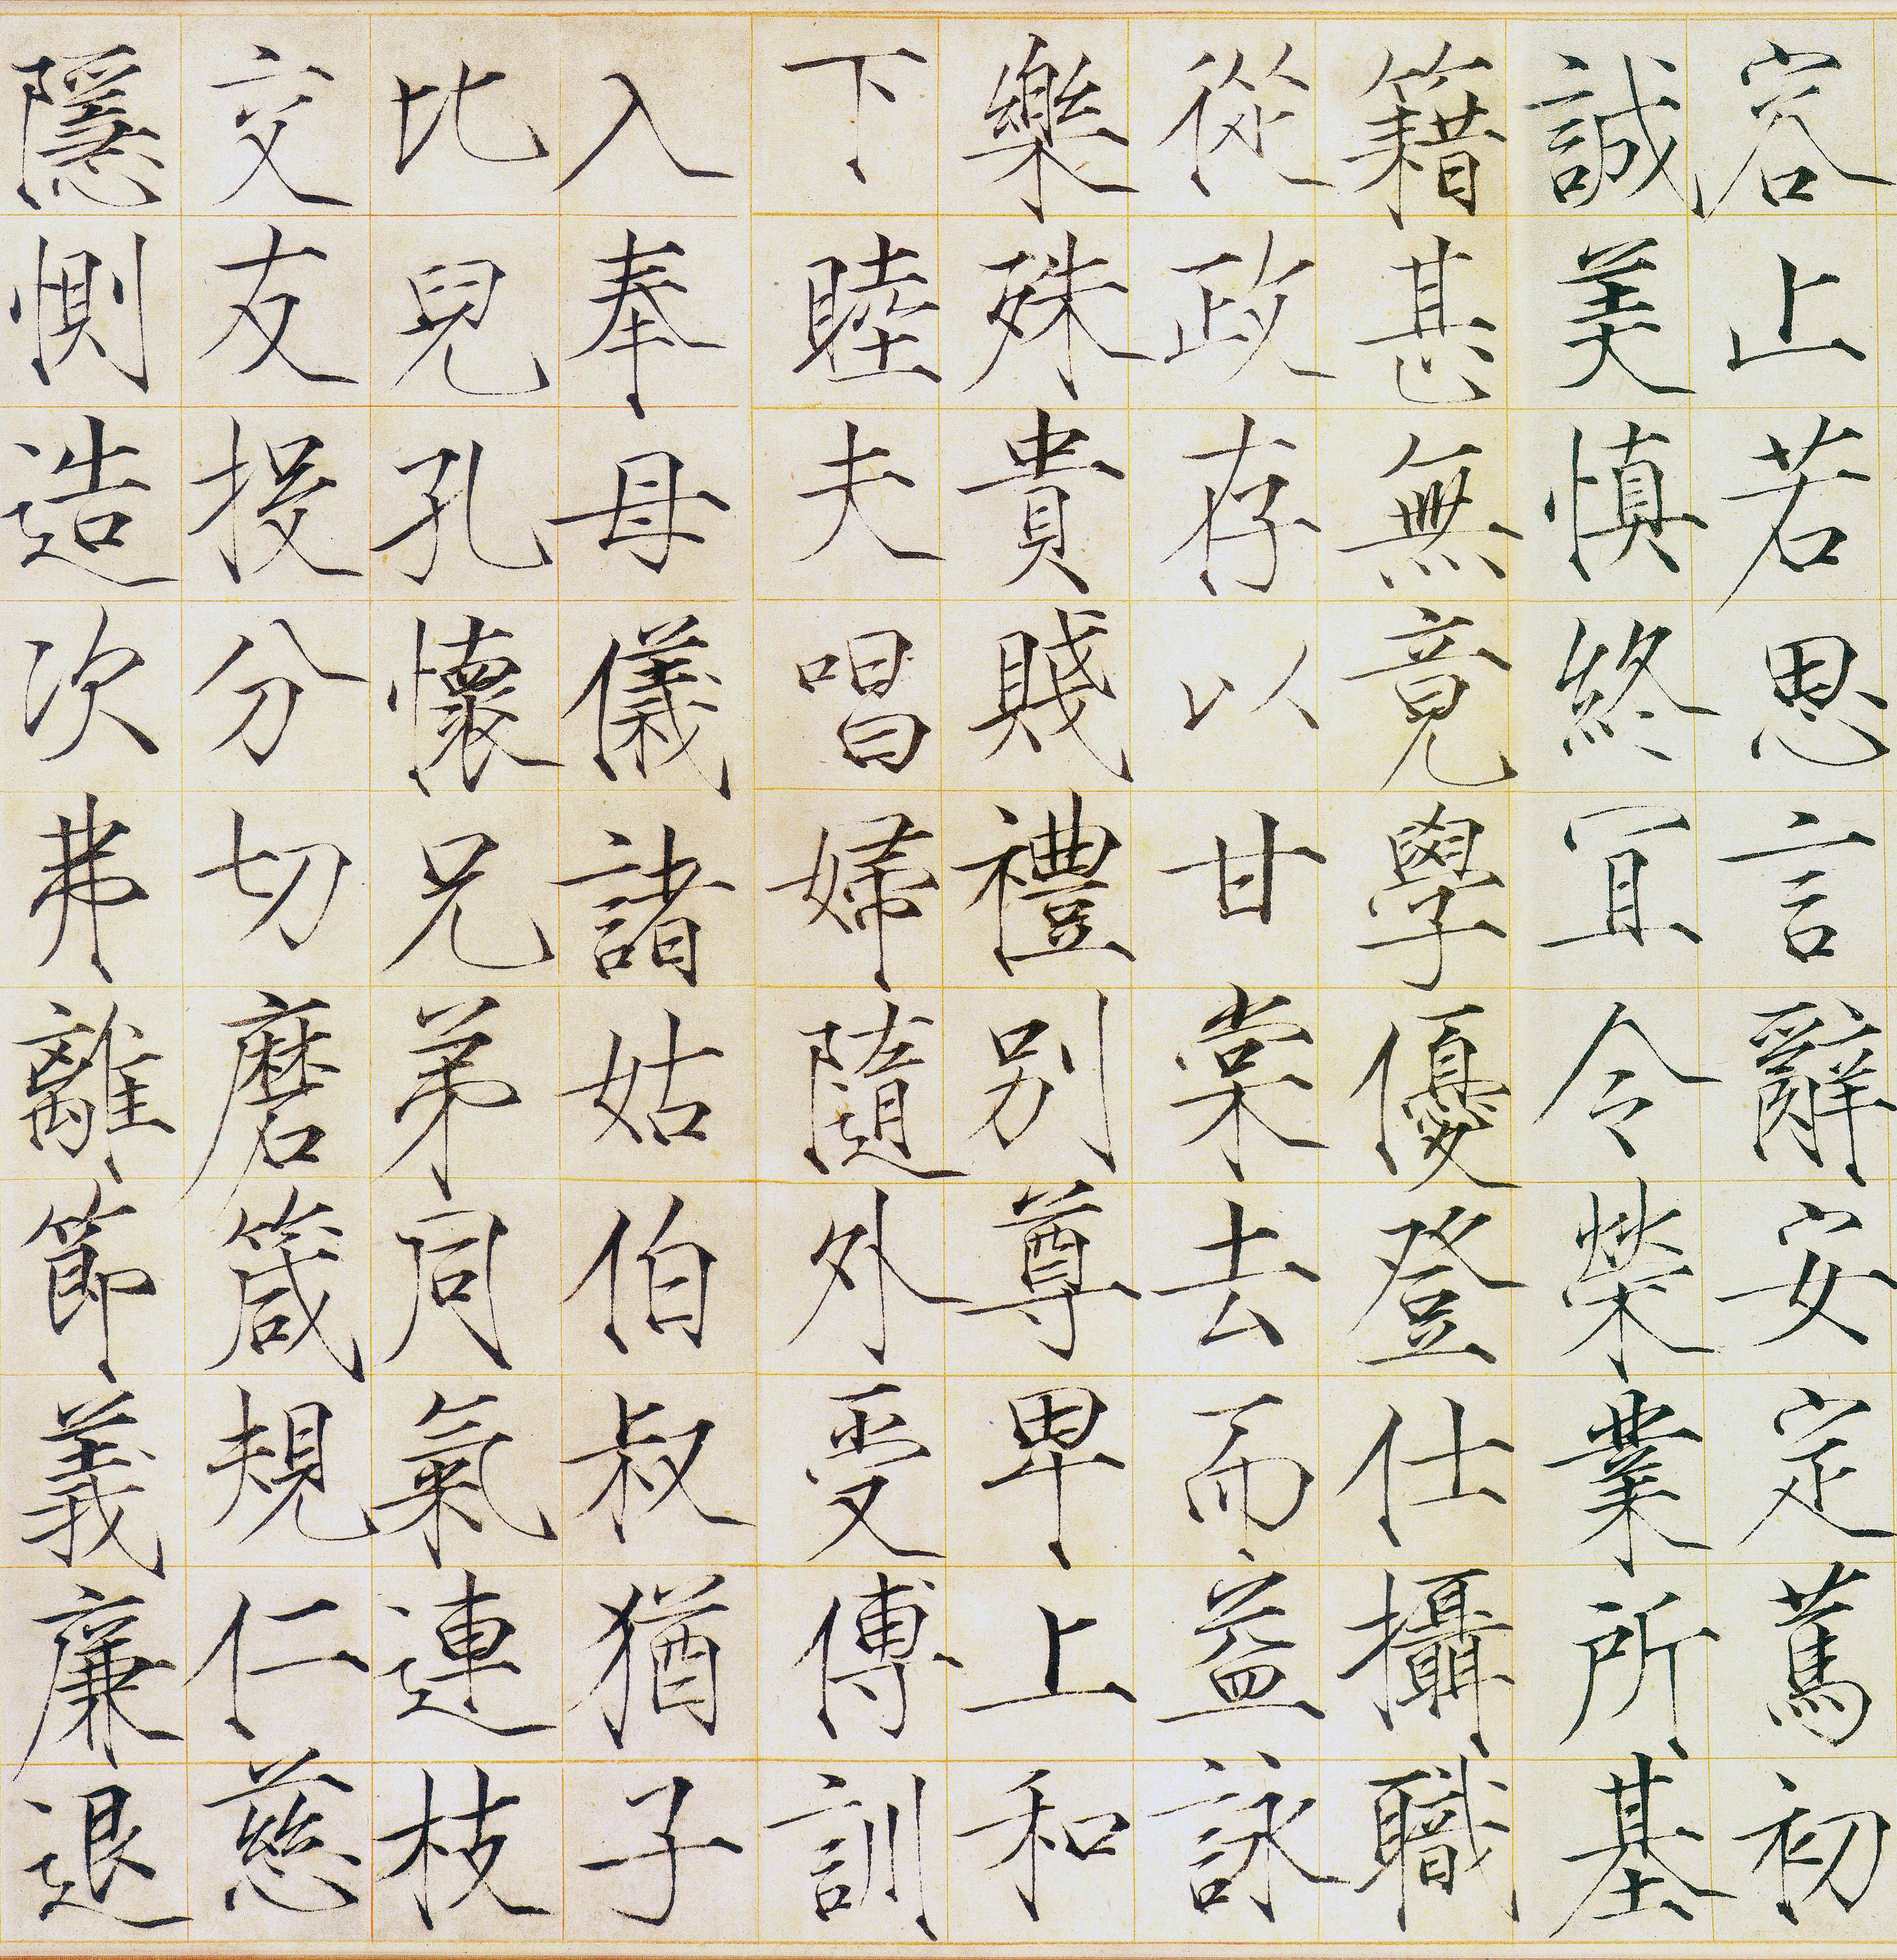 容止若思言辭安定篤初
誠美慎終宜令榮業所基
籍甚無竟學優登仕攝職
從政存以甘棠去而益詠
樂殊貴賤禮別尊卑上和
下睦夫唱婦隨外受傅訓
入奉母儀諸姑伯叔猶子
比兒孔懷兄弟同氣連枝
交友投分切磨箴規仁慈
隱惻造次弗離節義廉退